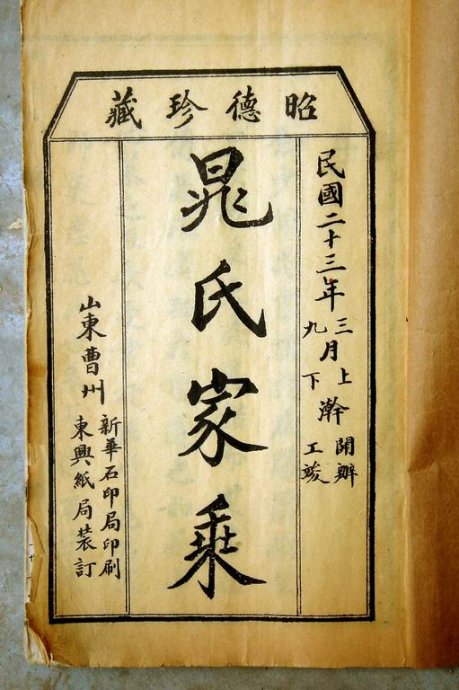 昭德珍藏
民國二十三年三月上澣開辦
九下工竣
晁氏家乘
山東曹州
新華石印局印刷
東興紙局裝訂